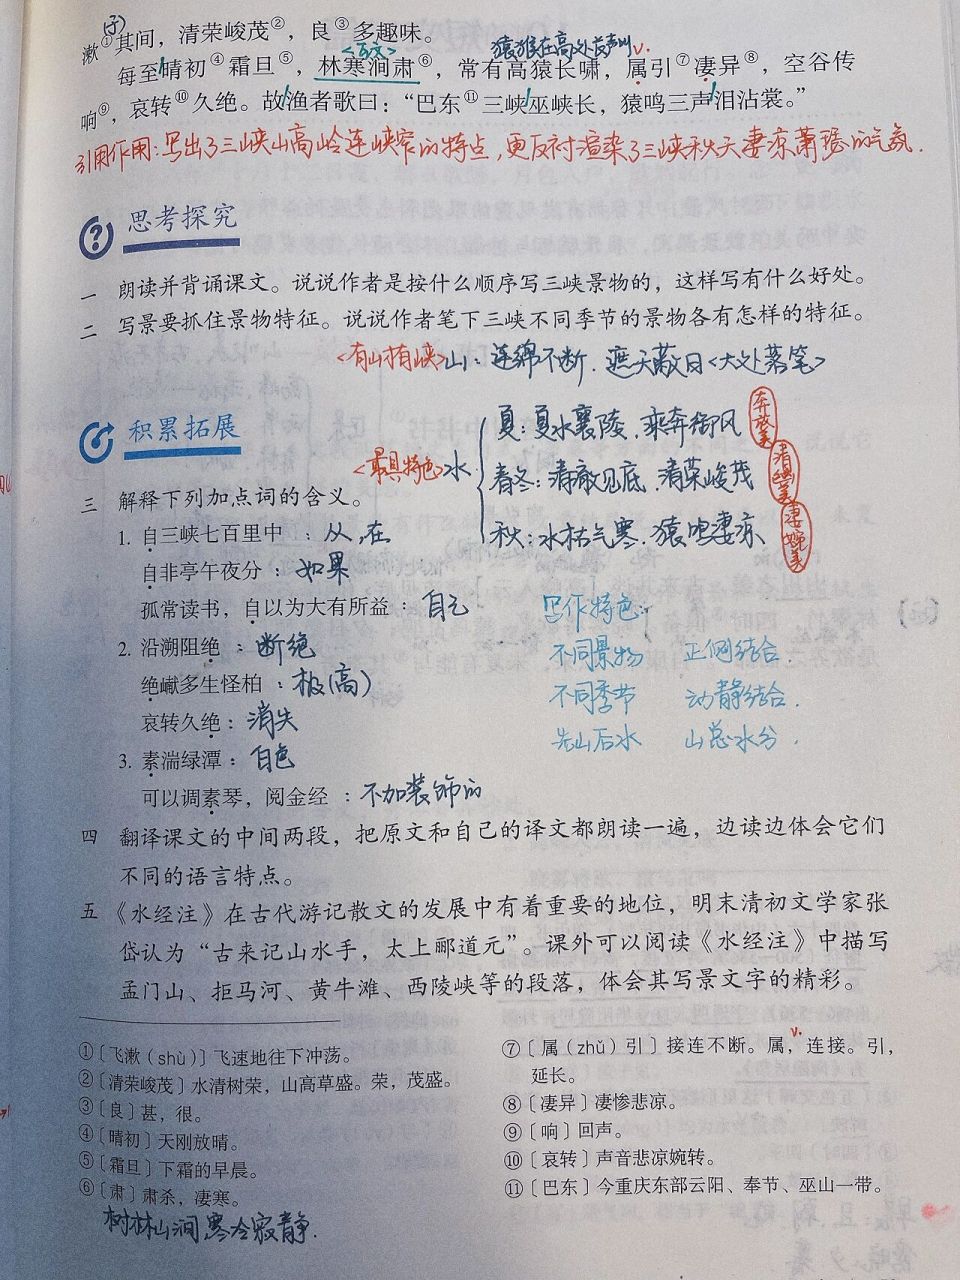 漱①其间，清荣峻茂②，良③多趣味。
猿猴在高处发声叫 v.
每至晴初④霜旦⑤，林寒涧肃⑥，常有高猿长啸，属引⑦凄异⑧，空谷传
<互文>
响⑨，哀转⑩久绝。故渔者歌曰：“巴东⑪三峡巫峡长，猿鸣三声泪沾裳。”
引用作用：写出了三峡山高岭连峡窄的特点，更反衬渲染了三峡秋天凄凉萧瑟的气氛.
思考探究
一 朗读并背诵课文。说说作者是按什么顺序写三峡景物的，这样写有什么好处。
二 写景要抓住景物特征。说说作者笔下三峡不同季节的景物各有怎样的特征。
<有山有峡>山：连绵不断.遮天蔽日<大处落笔>
积累拓展
<最具特色>水
夏：夏水襄陵.乘奔御风 奔放美
春冬：清澈见底.清荣峻茂 清幽美
秋：水枯气寒.猿鸣凄凉 凄婉美
三 解释下列加点词的含义。
1. 自三峡七百里中：从,在
自非亭午夜分：如果
孤常读书，自以为大有所益：自己
2. 沿溯阻绝：断绝
绝巘多生怪柏：极(高)
哀转久绝：消失
3. 素湍绿潭：白色
可以调素琴，阅金经：不加装饰的
写作特色：
不同景物 正侧结合
不同季节 动静结合.
先山后水 山总水分.
四 翻译课文的中间两段，把原文和自己的译文都朗读一遍，边读边体会它们
不同的语言特点。
五 《水经注》在古代游记散文的发展中有着重要的地位，明末清初文学家张
岱认为“古来记山水手，太上郦道元”。课外可以阅读《水经注》中描写
孟门山、拒马河、黄牛滩、西陵峡等的段落，体会其写景文字的精彩。
①〔飞漱（shù）〕飞速地往下冲荡。
②〔清荣峻茂〕水清树荣，山高草盛。荣，茂盛。
③〔良〕甚，很。
④〔晴初〕天刚放晴。
⑤〔霜旦〕下霜的早晨。
⑥〔肃〕肃杀，凄寒。
树林山涧寒冷寂静.
v.
⑦〔属（zhǔ）引〕接连不断。属，连接。引，
延长。
⑧〔凄异〕凄惨悲凉。
⑨〔响〕回声。
⑩〔哀转〕声音悲凉婉转。
⑪〔巴东〕今重庆东部云阳、奉节、巫山一带。